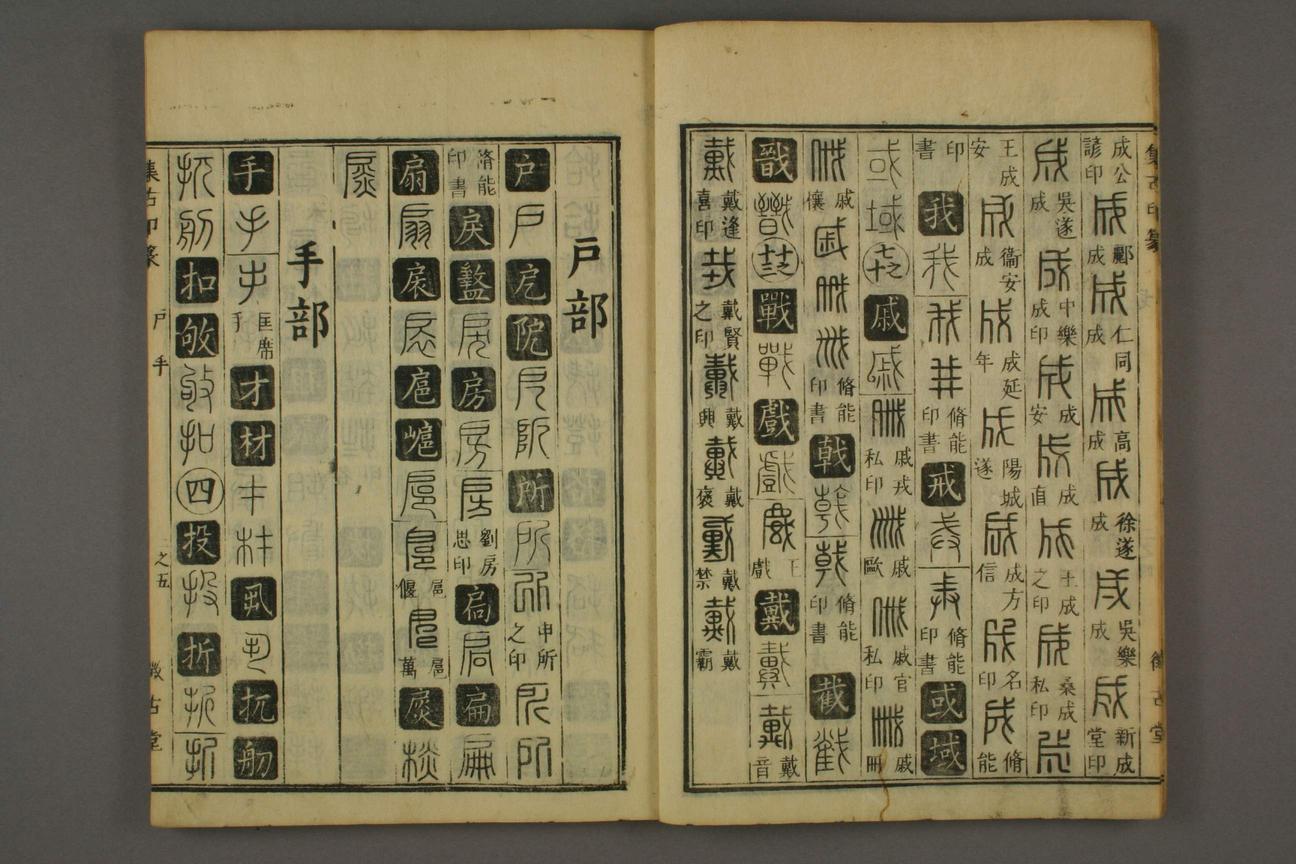 集古印篆 徵古堂
成公諺印 成 酈成 成 仁同成 成 高成 成 徐遂成 成 吳樂成 成 新成堂印
成 吳遂成 成 中樂成印 成 成安 成 成直 成 王成之印 成 桑成私印 成
王成安 成 衞安成 成 成延年 成 陽城遂 成 成方信 成 名印 成 脩能
印書 我 我 我 我 脩能印書 戒 戒 戒 脩能印書 或 域
或 域 七之十 戚 戚 戚 戚戎私印 戚 戚歐 戚 戚官私印 戚 戚冊
戚 戚儴 戚 戚 戚 脩能印書 戟 戟 戟 脩能印書 截 截
戩 戩 戰 戰 戲 戲 戲 王戲 戴 戴 戴 戴音
戴 戴逢喜印 戴 戴賢之印 戴 戴興 戴 戴褒 戴 戴禁 戴 戴霸
戶部
戶 戶 戹 阨 戹 阨 所 所 所 申所之印 所 所
脩能印書 戾 盭 戾 房 房 房 劉房思印 扃 扃 扁 扁
扇 扇 扆 扆 扈 扈 扈 扈偃 扈 扈萬 扊
扊
手部
手 手 手 匡席手 才 材 才 材 扤 舠
扤 舠 扣 敂 敂 扣 四 投 投 折 折 折
集古印篆 戶 手 之五 徵古堂